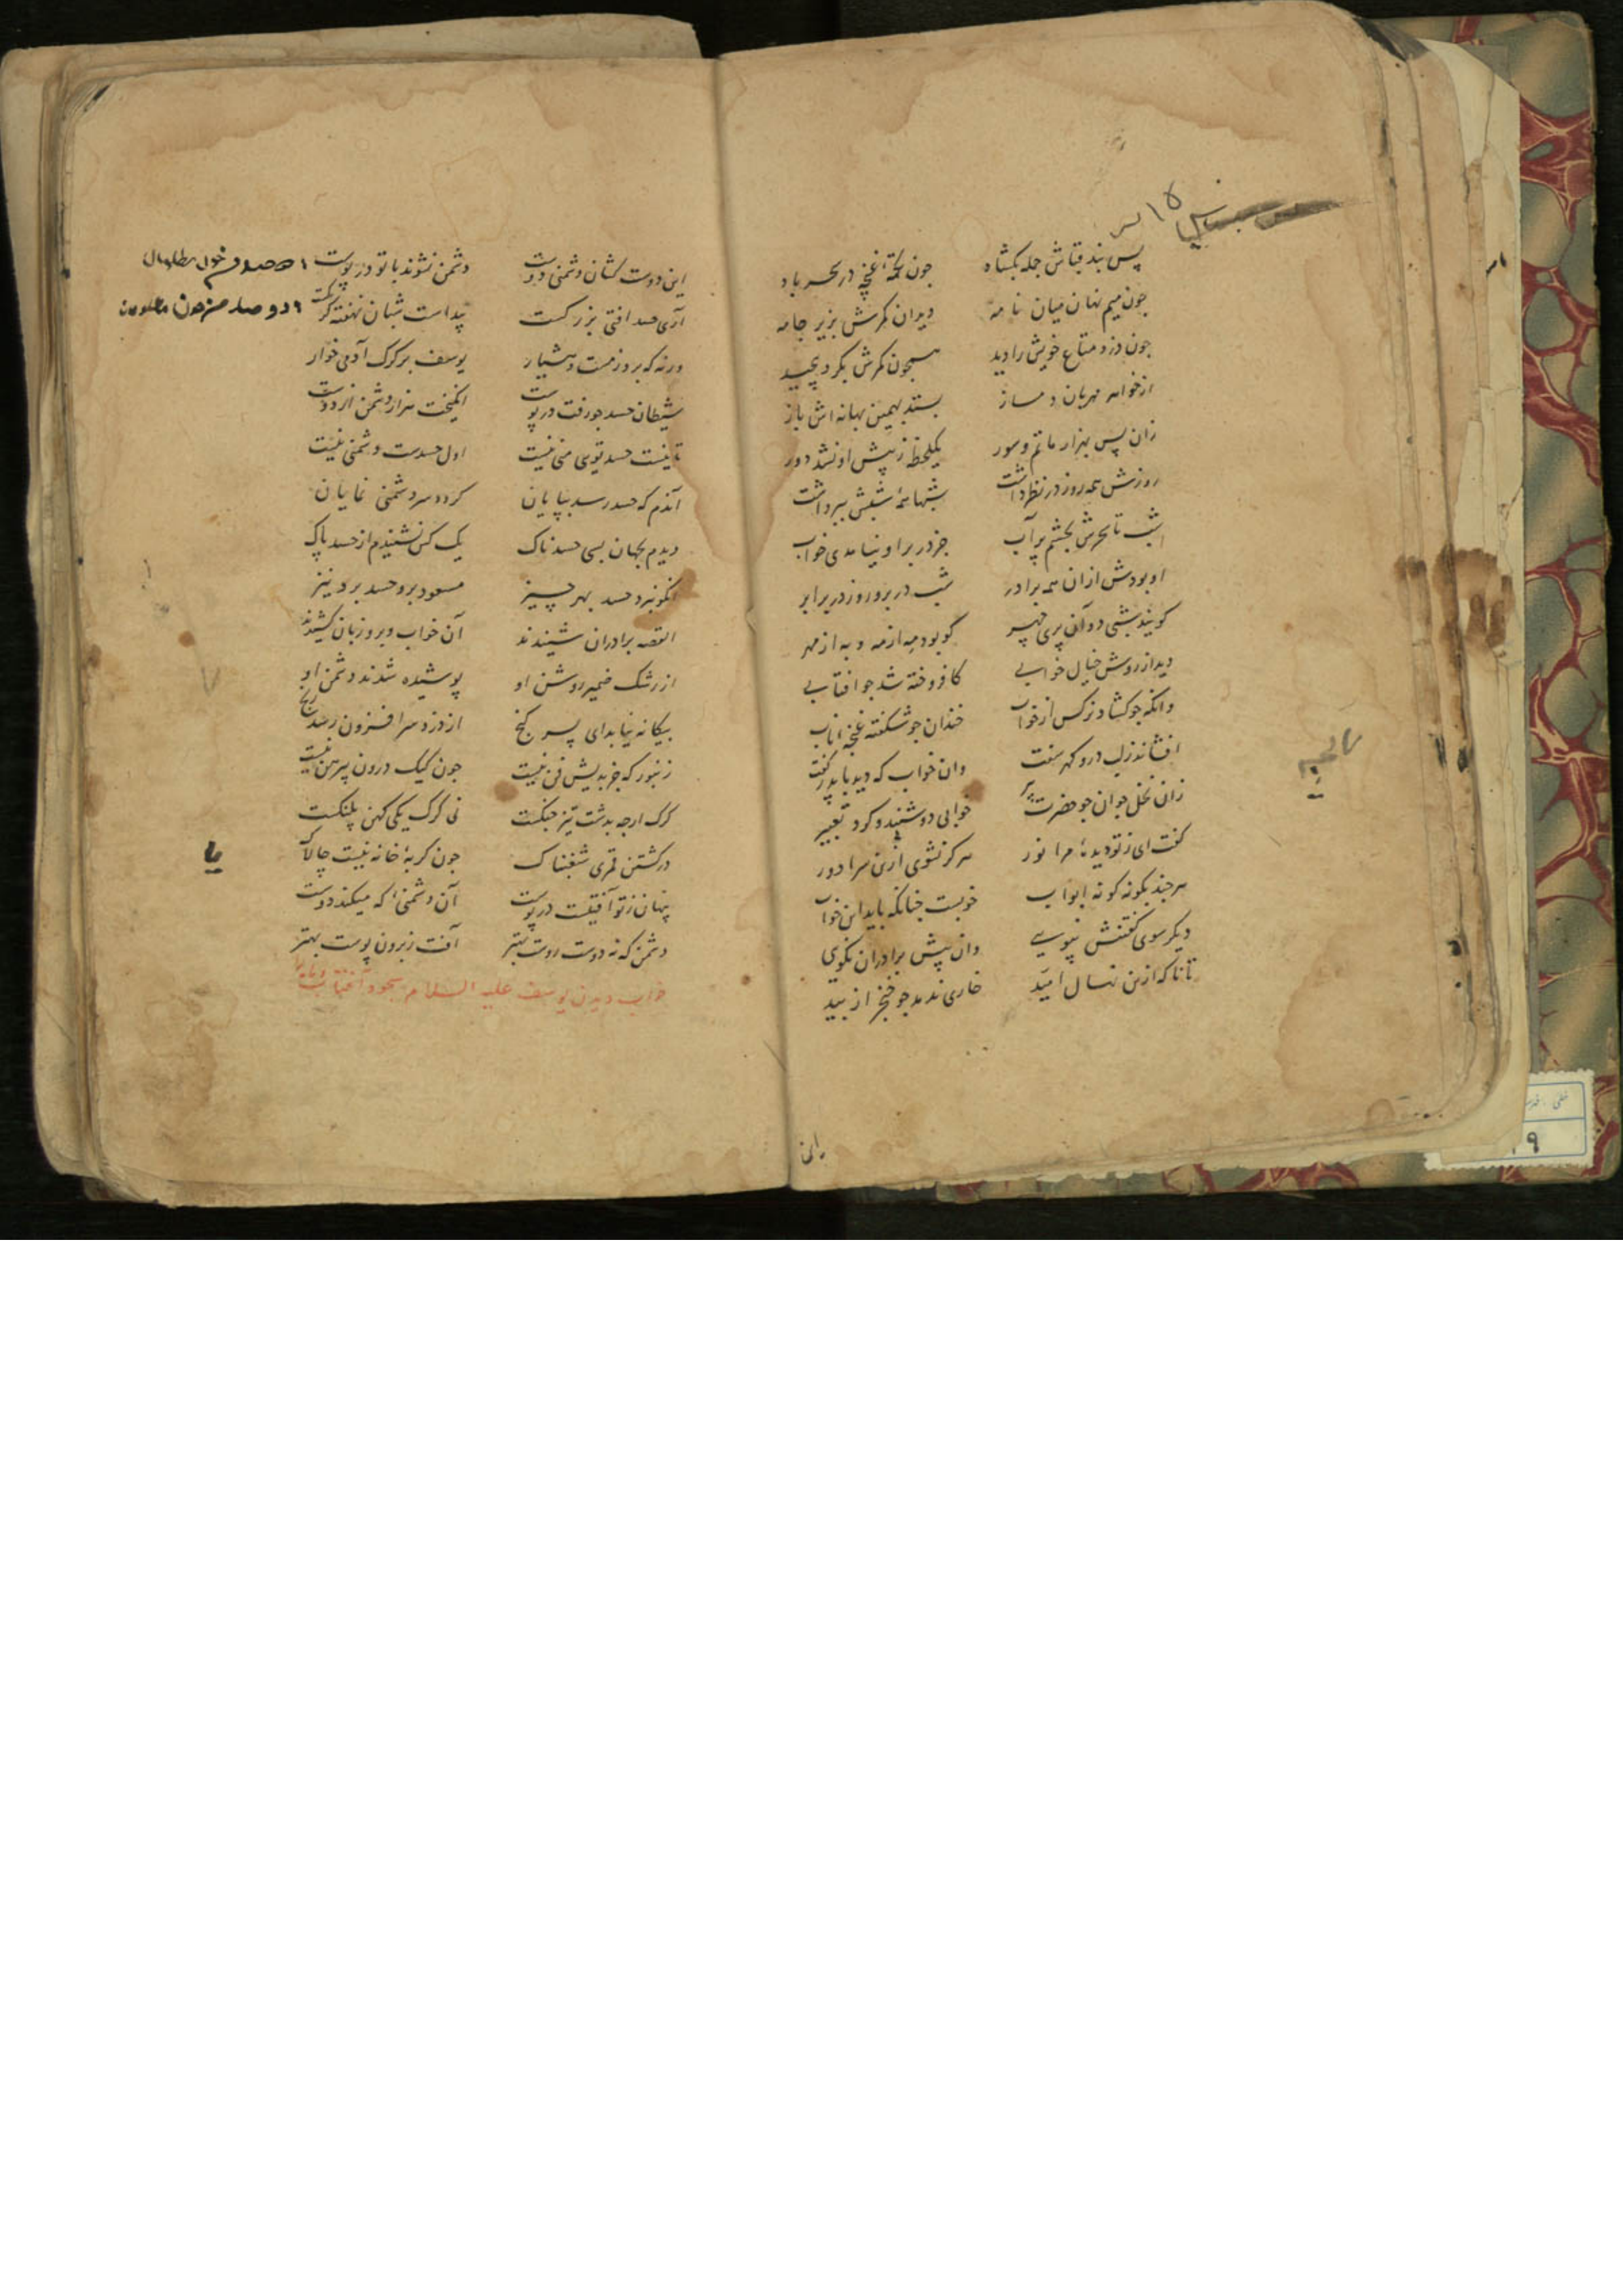 پس بند قباش جمله بگشاد جون تکمهٔ غنچه در سحر باد
جون میم نهان میان نامه دید ان کمرش بزیر جامه
جون دزد متاع خویش را دید همجون کمرش بکرد پیچید
از خواهر مهربان دمساز بستد بهمین بهانه اش باز
زان پس بهزار ماتم و سور یکلحظه ز پیش او نشد دور
روزش همه روز در نظر داشت شبها همهٔ شبش ببر داشت
شب تا سحرش بچشم پر آب جز در بر او نیامدی خواب
او بودش ازان همه برادر شب در بر و روز در برابر
کویند شبی دو آن پری چهر کو بود مه از مه و به از مهر
دید از روش خیال خوابی کافروخته شد جو افتابی
وانکه جو کشاد نرکس از خواب خندان جو شکفته غنچه
افشاند زلب در و کهر سفت وان خواب که دید با پدر گفت
زان نخل جوان جو حضرت پیر خوابی دو شنید و کرد تعبیر
کفت ای ز تو دیدهٔ مرا نور هرکز نشوی ازین سرا دور
هرجند بکونه کونه ابواب خوبست جنانکه باید این خواب
دیکر سوی کفتنش نپویی وان پیش برادران نکویی
تا ناکه ازین نهال امید خاری ندمد جو خنجر از بید
این دوست کشان دشمنی دوست دشمن نشوند با تو در پوست
آری حسد افتی بزرکست پیداست شبان نهفته کرکست
ورنه که بروز مست و هشیار یوسف بر کرک آدمی خوار
شیطان حسد جو رفت در پوست انکیخت هزار دشمن از دوست
تا نیست حسد تویی منی نیست اول حسدست دشمنی نیست
آندم که حسد رسد بپایان کردد سر دشمنی نمایان
دیدم بجهان بسی حسدناک یک کس نشنیدم از حسد پاک
انکو نبرد حسد بهر چیز مسعود برو حسد برد نیز
القصه برادران شنیدند آن خواب و برو زبان کشیدند
از رشک ضمیر روشن او پوشیده شدند دشمن او
بیکانه نیابد ای پسر کنج از دزد سرا فزون رسد رنج
زنبور که جز بدیش فن نیست جون کیک درون پیرهن نیست
کرک ارجه بدشت تیز جنکست نی کرک یکی کهن پلنکست
در کشتن قمری شغبناک جون کربهٔ خانه نیست چالاک
پنهان ز تو آفتیست در پوست آن دشمنی که میکند دوست
دشمن که نه دوست روست بهتر آفت ز برون پوست بهتر
خواب دیدن یوسف علیه السلام سجود آفتاب و ماه را